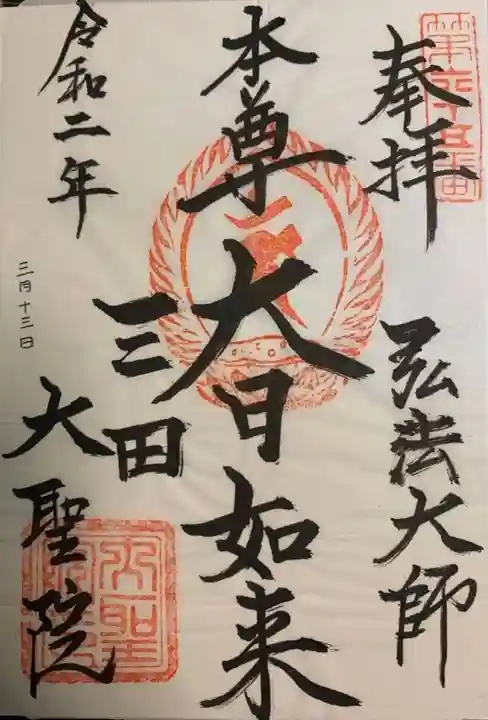 第六十五番
奉拝
弘法大師
本尊大日如来
三田
大聖院
令和二年
三月十三日